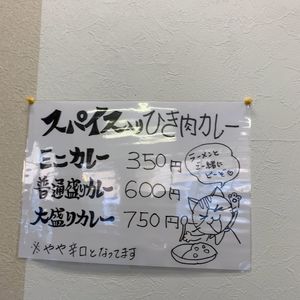 スパイス入りひき肉カレー
ミニカレー 350円
普通盛りカレー 600円
大盛りカレー 750円
※やや辛口となってます
ラーメンと
ご一緒に
どーぞ♡